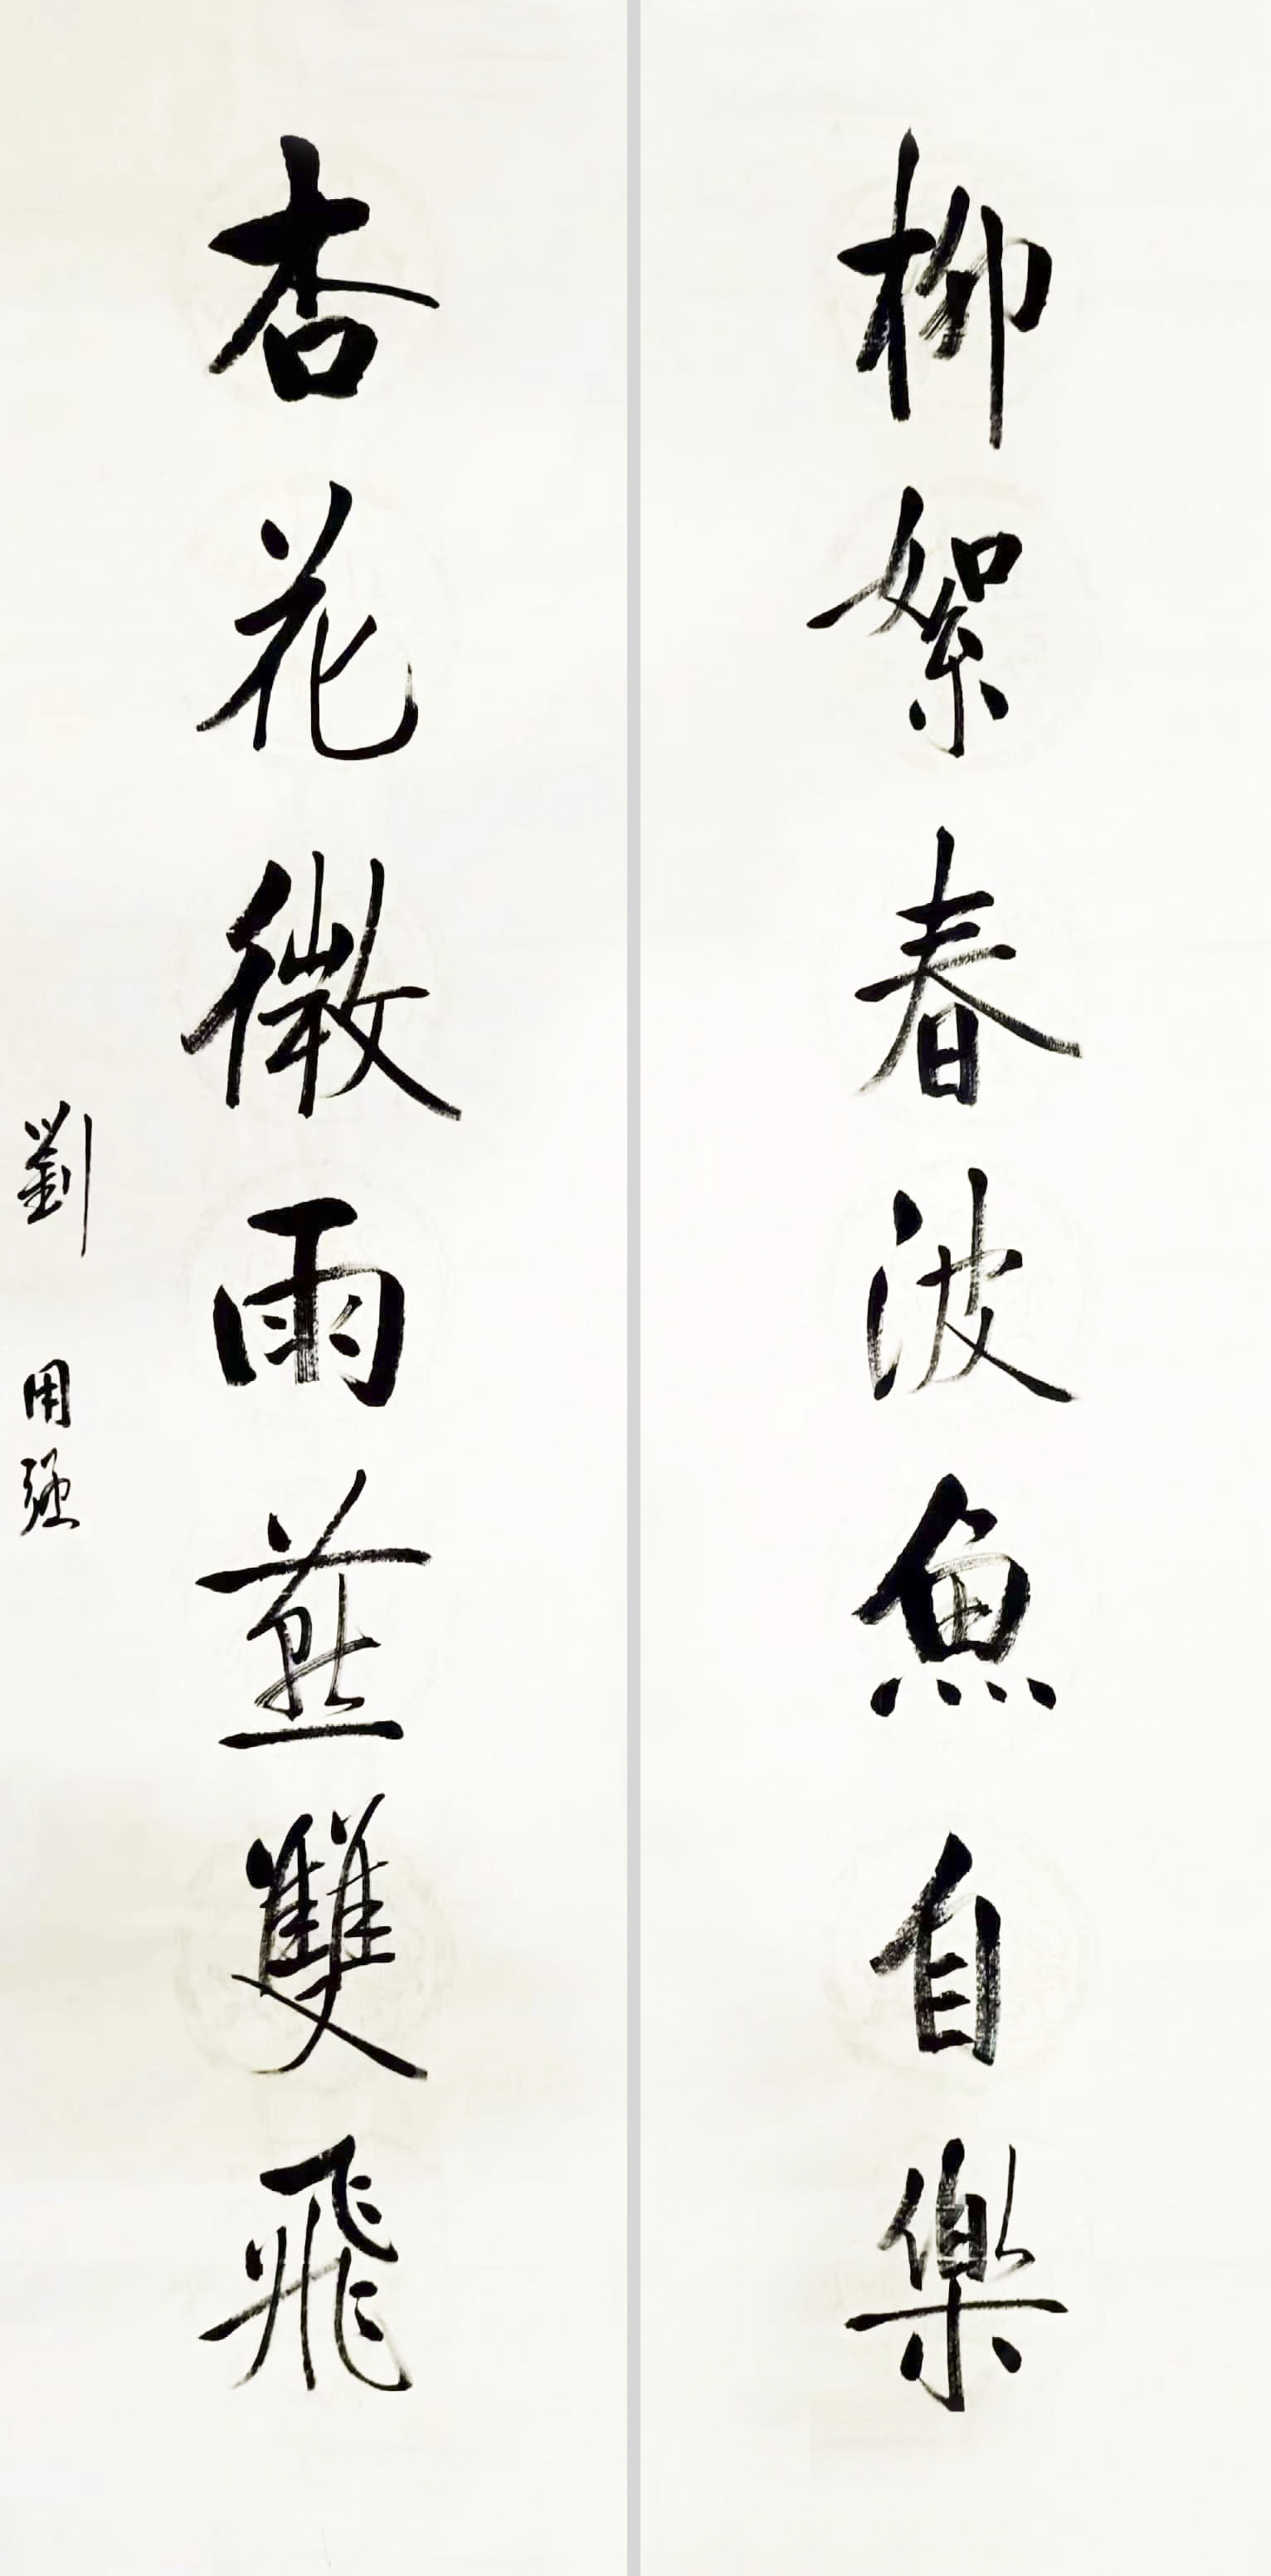 柳絮春波魚自樂
杏花微雨燕雙飛
劉用强